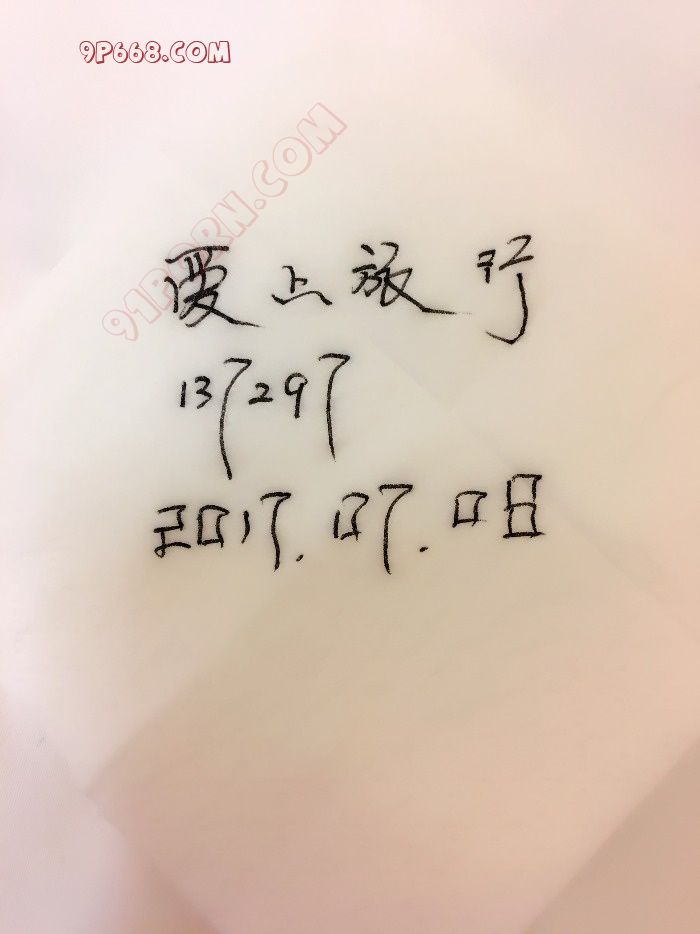 9P668.COM
91PORN.COM
爱上旅行
137297
2017.07.08